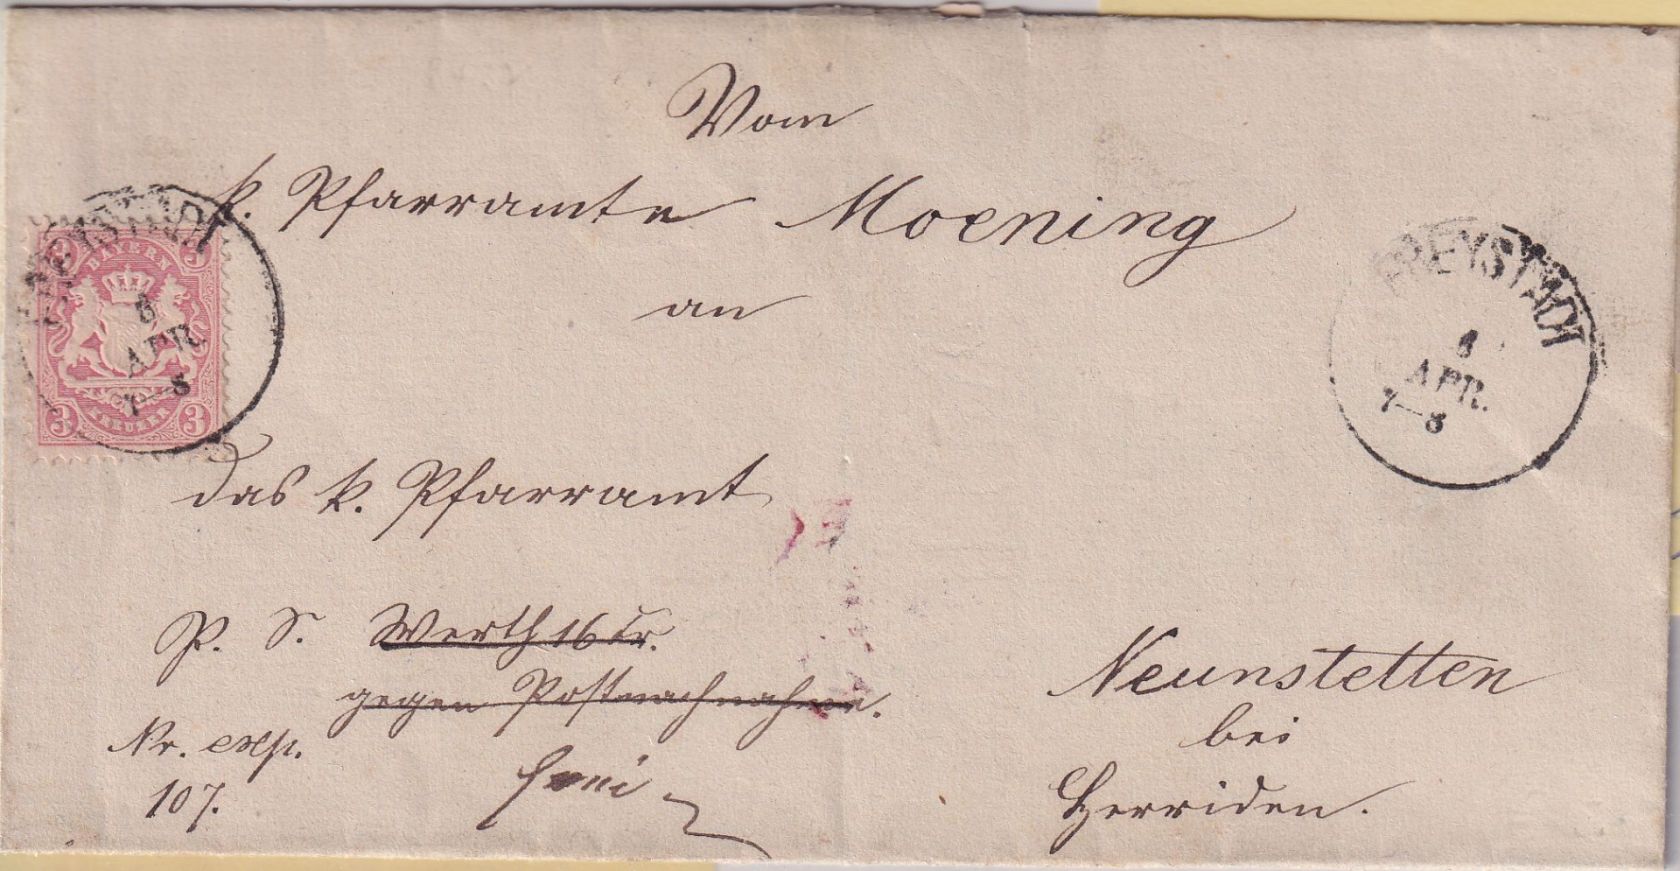 Vom
k. Pfarramte Moening
an
das k. Pfarramt
P. S. Werth 16 kr.
gegen Postnachnahme.
Nr. exp.
107.
frei
Neunstetten
bei
Herriden.
FREYSTADT
6
APR
7–8
BAYERN
3 3
KREUZER
3 3
FREYSTADT
6
APR.
7–8